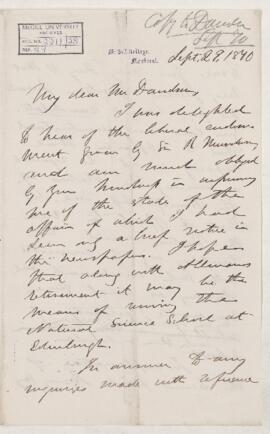 McGILL UNIVERSITY
ARCHIVES
ACC. NO.
REF.
McGill College,
Montreal,
Sept. 29, 1870
My dear Mr Davidson,
I was delighted
to hear of the liberal endow
ment given by Sir R Murchison,
and am much obliged
by your kindness in informing
me of the state of the
affair of which I had
seen only a brief notice in
the newspapers. I hope
that along with Allmans
retirement it may be the
means of reviving the
Natural Science School at
Edinburgh.
In answer to any
inquiries made with reference